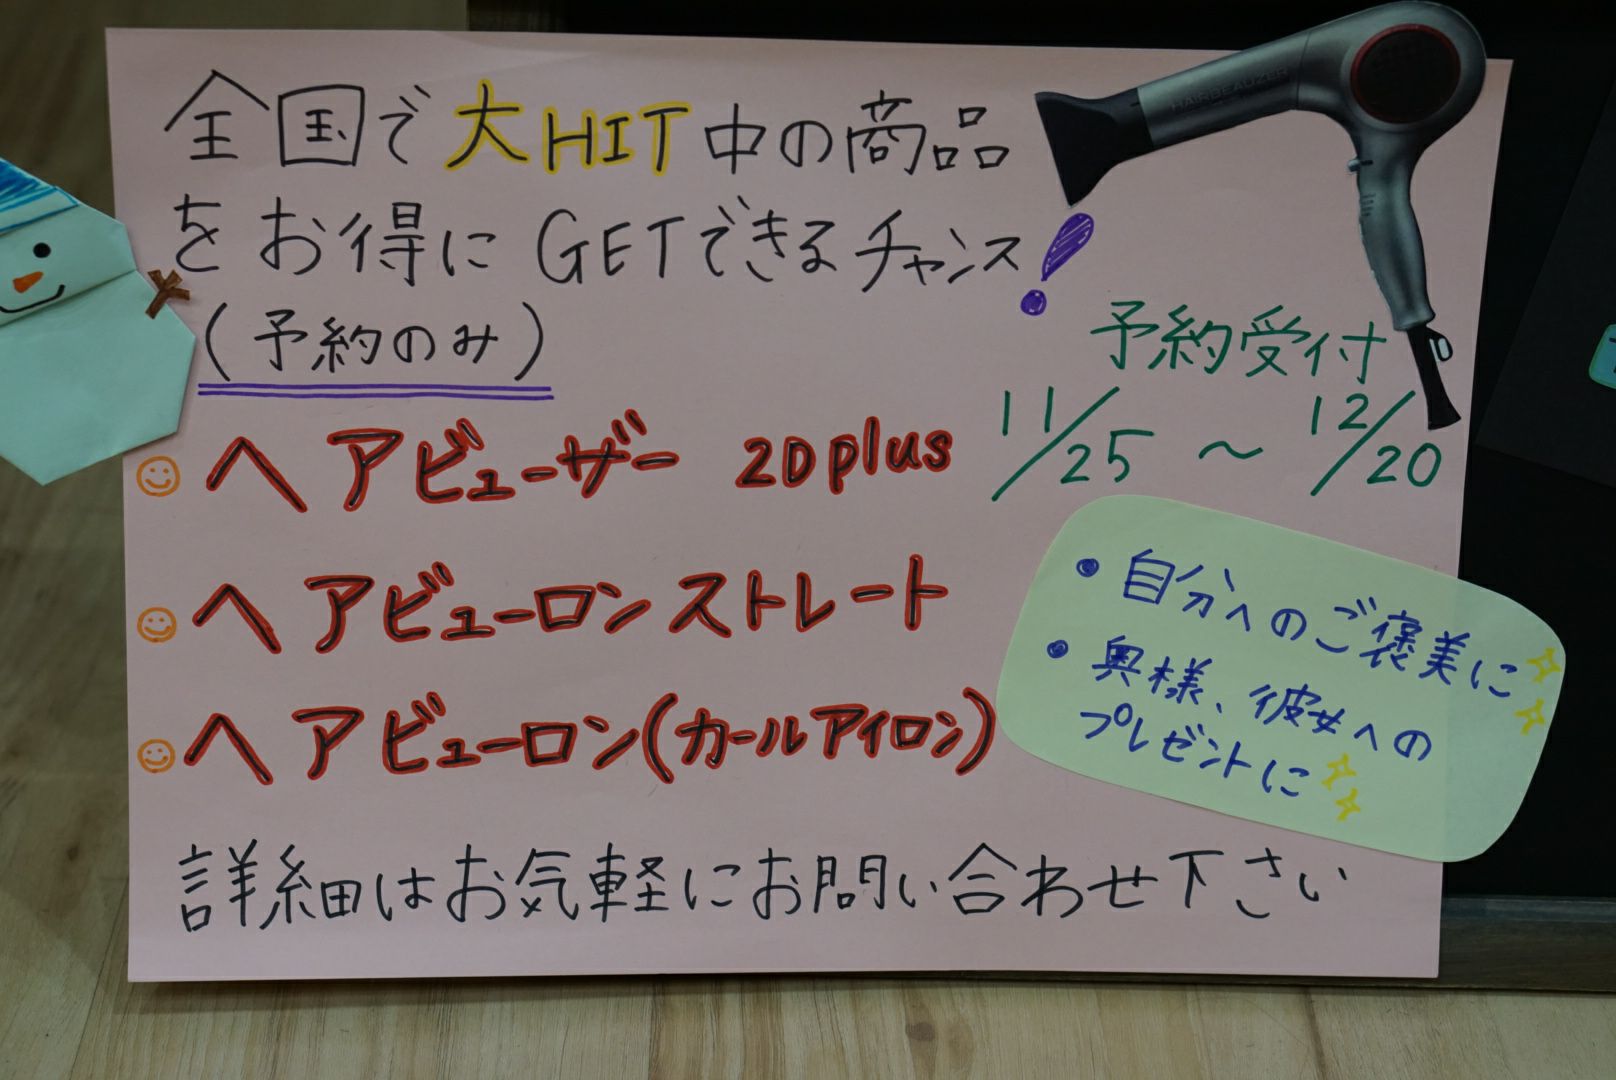 全国で大HIT中の商品
をお得にGETできるチャンス!
(予約のみ)
予約受付
11/25 ~ 12/20
ヘアビューザー 2Dplus
ヘアビューロン ストレート
ヘアビューロン(カールアイロン)
・自分へのご褒美に
・奥様、彼女への
プレゼントに
詳細はお気軽にお問い合わせ下さい
HAIRBEAUZER